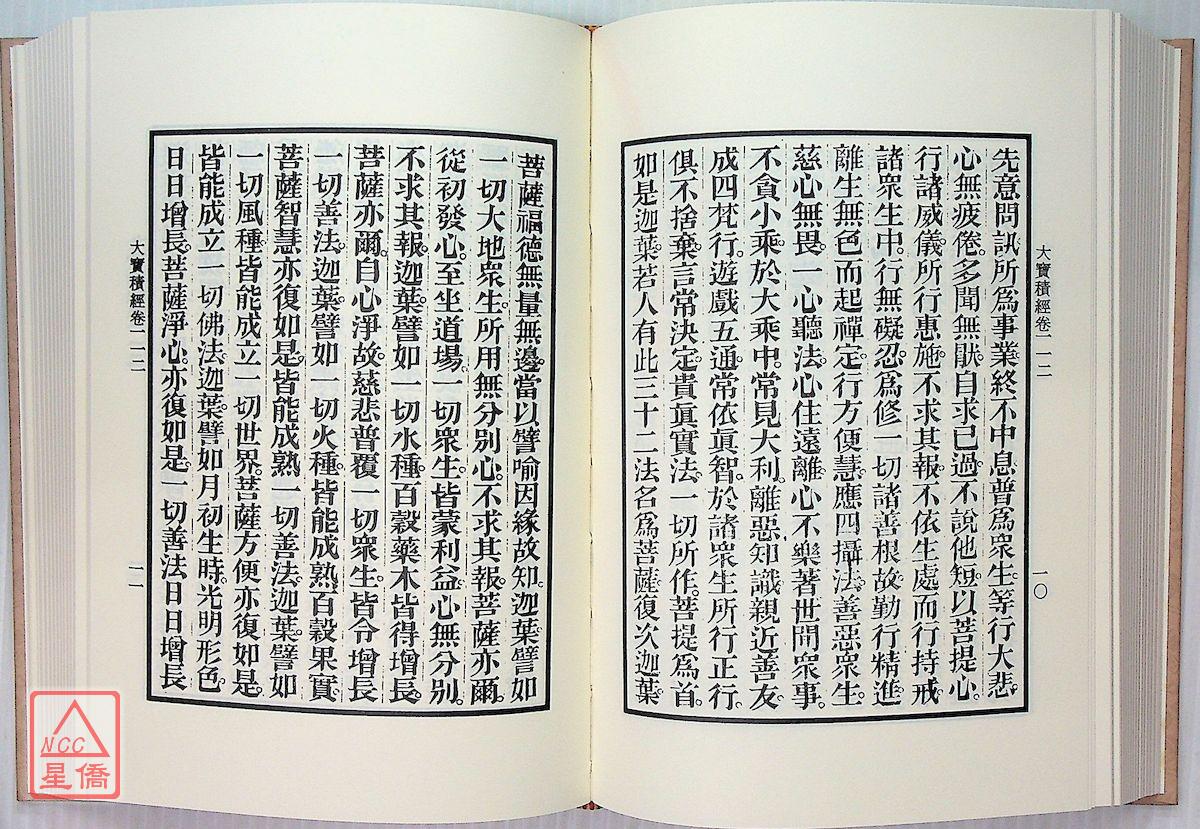 大寶積經卷一一二
一〇
先意問訊所爲事業終不中息普爲衆生等行大悲。
心無疲倦。多聞無猒。自求已過不說他短。以菩提心。
行諸威儀。所行惠施。不求其報。不依生處而行持戒
諸衆生中。行無礙忍。爲修一切諸善根故。勤行精進
離生無色而起禪定。行方便慧。應四攝法。善惡衆生。
慈心無畏。一心聽法。心住遠離。心不樂著世間衆事。
不貪小乘。於大乘中。常見大利。離惡知識。親近善友。
成四梵行。遊戲五通。常依眞智。於諸衆生所行正行。
俱不捨棄。言常決定。貴眞實法。一切所作。菩提爲首。
如是迦葉若人有此三十二法。名爲菩薩。復次迦葉
菩薩福德無量無邊。當以譬喻因緣故知。迦葉。譬如
一切大地衆生。所用無分別心。不求其報。菩薩亦爾。
從初發心。至坐道場。一切衆生。皆蒙利益。心無分別。
不求其報。迦葉。譬如一切水種。百穀藥木皆得增長。
菩薩亦爾。自心淨故。慈悲普覆一切衆生。皆令增長
一切善法。迦葉。譬如一切火種。皆能成熟百穀果實
菩薩智慧。亦復如是。皆能成熟一切善法。迦葉。譬如
一切風種。皆能成立一切世界。菩薩方便。亦復如是。
皆能成立一切佛法。迦葉。譬如月初生時。光明形色。
日日增長。菩薩淨心。亦復如是。一切善法日日增長
大寶積經卷一一二
一一
NCC
星僑